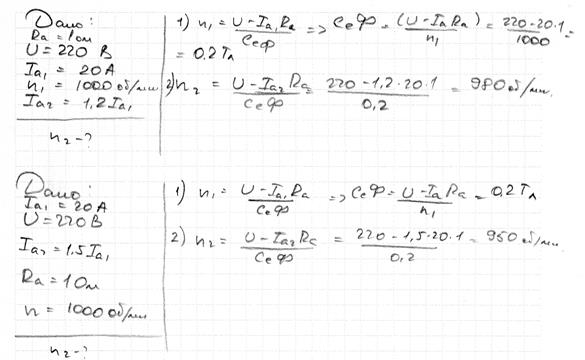 Дано:
Ra = 1 Ом
U = 220 В
Ia₁ = 20 А
n₁ = 1000 об/мин
Ia₂ = 1,2 Ia₁
n₂ - ?
1) n₁ = (U - Ia₁Ra)/(CeФ) => CeФ = (U - Ia Ra)/n₁ = (220 - 20·1)/1000 =
= 0.2 Тл
2) n₂ = (U - Ia₂Ra)/(CeФ) = (220 - 1,2·20·1)/0,2 = 980 об/мин.
Дано:
Ia₁ = 20 А
U = 220 В
Ia₂ = 1,5 Ia₁
Ra = 1 Ом
n = 1000 об/мин
n₂ - ?
1) n₁ = (U - Ia₁Ra)/(CeФ) => CeФ = (U - Ia Ra)/n₁ = 0.2 Тл
2) n₂ = (U - Ia₂Ra)/(CeФ) = (220 - 1,5·20·1)/0,2 = 950 об/мин.